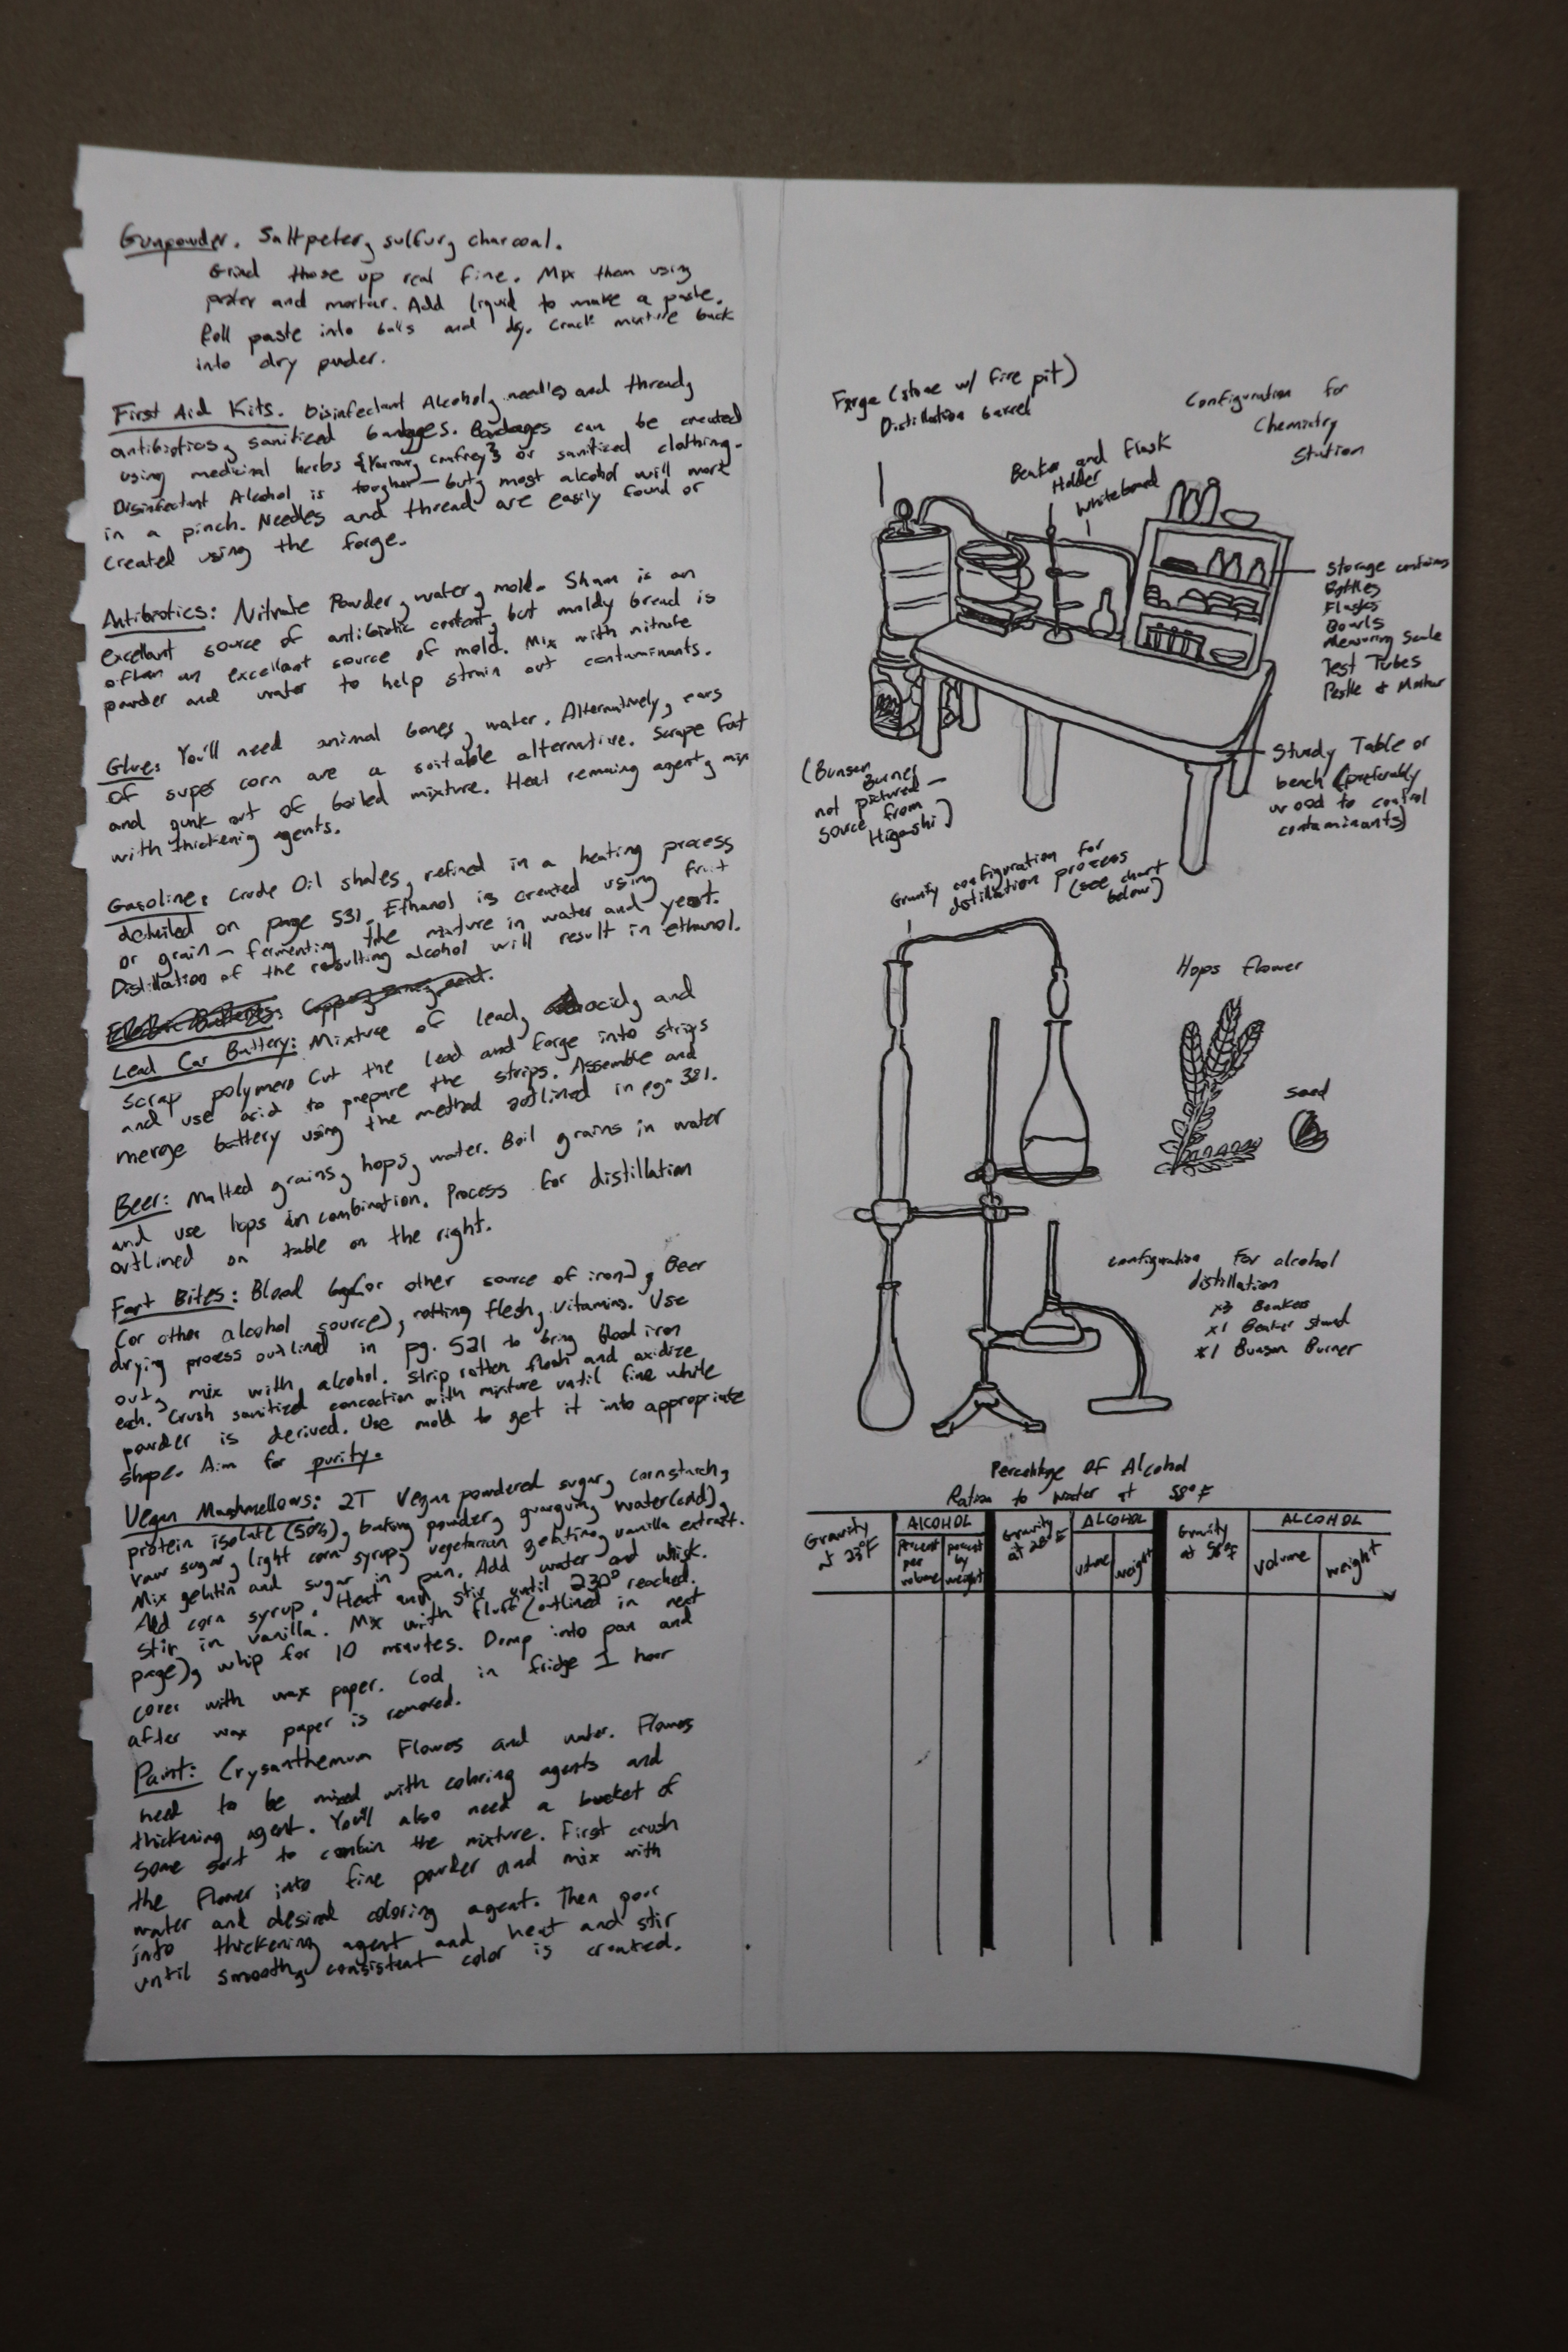 Gunpowder. Saltpeter, sulfur, charcoal.
Grind those up real fine. Mix them using
and mortar. Add liquid to make a paste.
Roll paste into balls and dry. Crack mixture back
into dry powder.
First Aid Kits. Disinfectant Alcohol, needles and thread,
antibiotics, sanitized bandages. Bandages can be created
using medicinal herbs {Yarrow, comfrey} or sanitized clothing.
Disinfectant Alcohol is tougher — but, most alcohol will work
in a pinch. Needles and thread are easily found or
created using the forge.
Antibiotics: Nitrate Powder, water, mold. Sham is an
excellant source of antibiotic content, but moldy bread is
often an excellant source of mold. Mix with nitrate
powder and water to help strain out contaminants.
Glue: You'll need animal bones, water. Alternatively, ears
of super corn are a suitable alternative. Scrape fat
and gunk out of boiled mixture. Heat remaining agent, mix
with thickening agents.
Gasoline: Crude Oil shales, refined in a heating process
detailed on page 531. Ethanol is created using fruit
or grain — fermenting the mixture in water and yeast.
Distillation of the resulting alcohol will result in ethanol.
Lead Car Battery: Mixture of lead, acid, and
scrap polymers. Cut the lead and forge into strips
and use acid to prepare the strips. Assemble and
merge battery using the method outlined in pg. 381.
Beer: Malted grains, hops, water. Boil grains in water
and use hops in combination. Process for distillation
outlined on table on the right.
Fort Bites: Blood bag (or other source of iron), Beer
(or other alcohol source), rotting flesh, vitamins. Use
drying process outlined in pg. 521 to bring blood iron
out, mix with alcohol. Strip rotten flesh and oxidize
each. Crush sanitized concoction with mixture until fine white
powder is derived. Use mold to get it into appropriate
shape. Aim for purity.
Vegan Mashmellows: 2T Vegan powdered sugar, cornstarch,
protein isolate (50%), baking powder, guargum, water (cold),
raw sugar, light corn syrup, vegetarian gelatin, vanilla extract.
Mix gelatin and sugar in pan. Add water and whisk.
Add corn syrup. Heat and stir until 230° reached.
Stir in vanilla. Mix with fluff (outlined in next
page), whip for 10 minutes. Dump into pan and
cover with wax paper. Cool in fridge 1 hour
after wax paper is removed.
Paint: Crysanthemum Flowers and water. Flowers
need to be mixed with coloring agents and
thickening agent. You'll also need a bucket of
some sort to contain the mixture. First crush
the flower into fine powder and mix with
water and desired coloring agent. Then pour
into thickening agent and heat and stir
until smooth, consistent color is created.
Forge (stone w/ fire pit)
Distillation barrel
Configuration for
Chemistry
Station
Beaker and Flask
Holder
Whiteboard
Storage contains
Bottles
Flasks
Bowls
Measuring Scale
Test Tubes
Pestle & Mortar
Sturdy Table or
bench (preferably
wood to control
contaminants)
(Bunsen
Burner
not pictured —
source from
Higashi)
Gravity configuration for
distillation process
(see chart
below)
Hops flower
seed
configuration For alcohol
distillation
x3 Beakers
x1 Beaker Stand
x1 Bunsen Burner
Percentage Of Alcohol
Ration to Water at 58°F
Gravity
at 23°F
ALCOHOL
Percent
per
volume
percent
by
weight
Gravity
at 28°F
ALCOHOL
volume
weight
Gravity
at 58°F
ALCOHOL
volume
weight